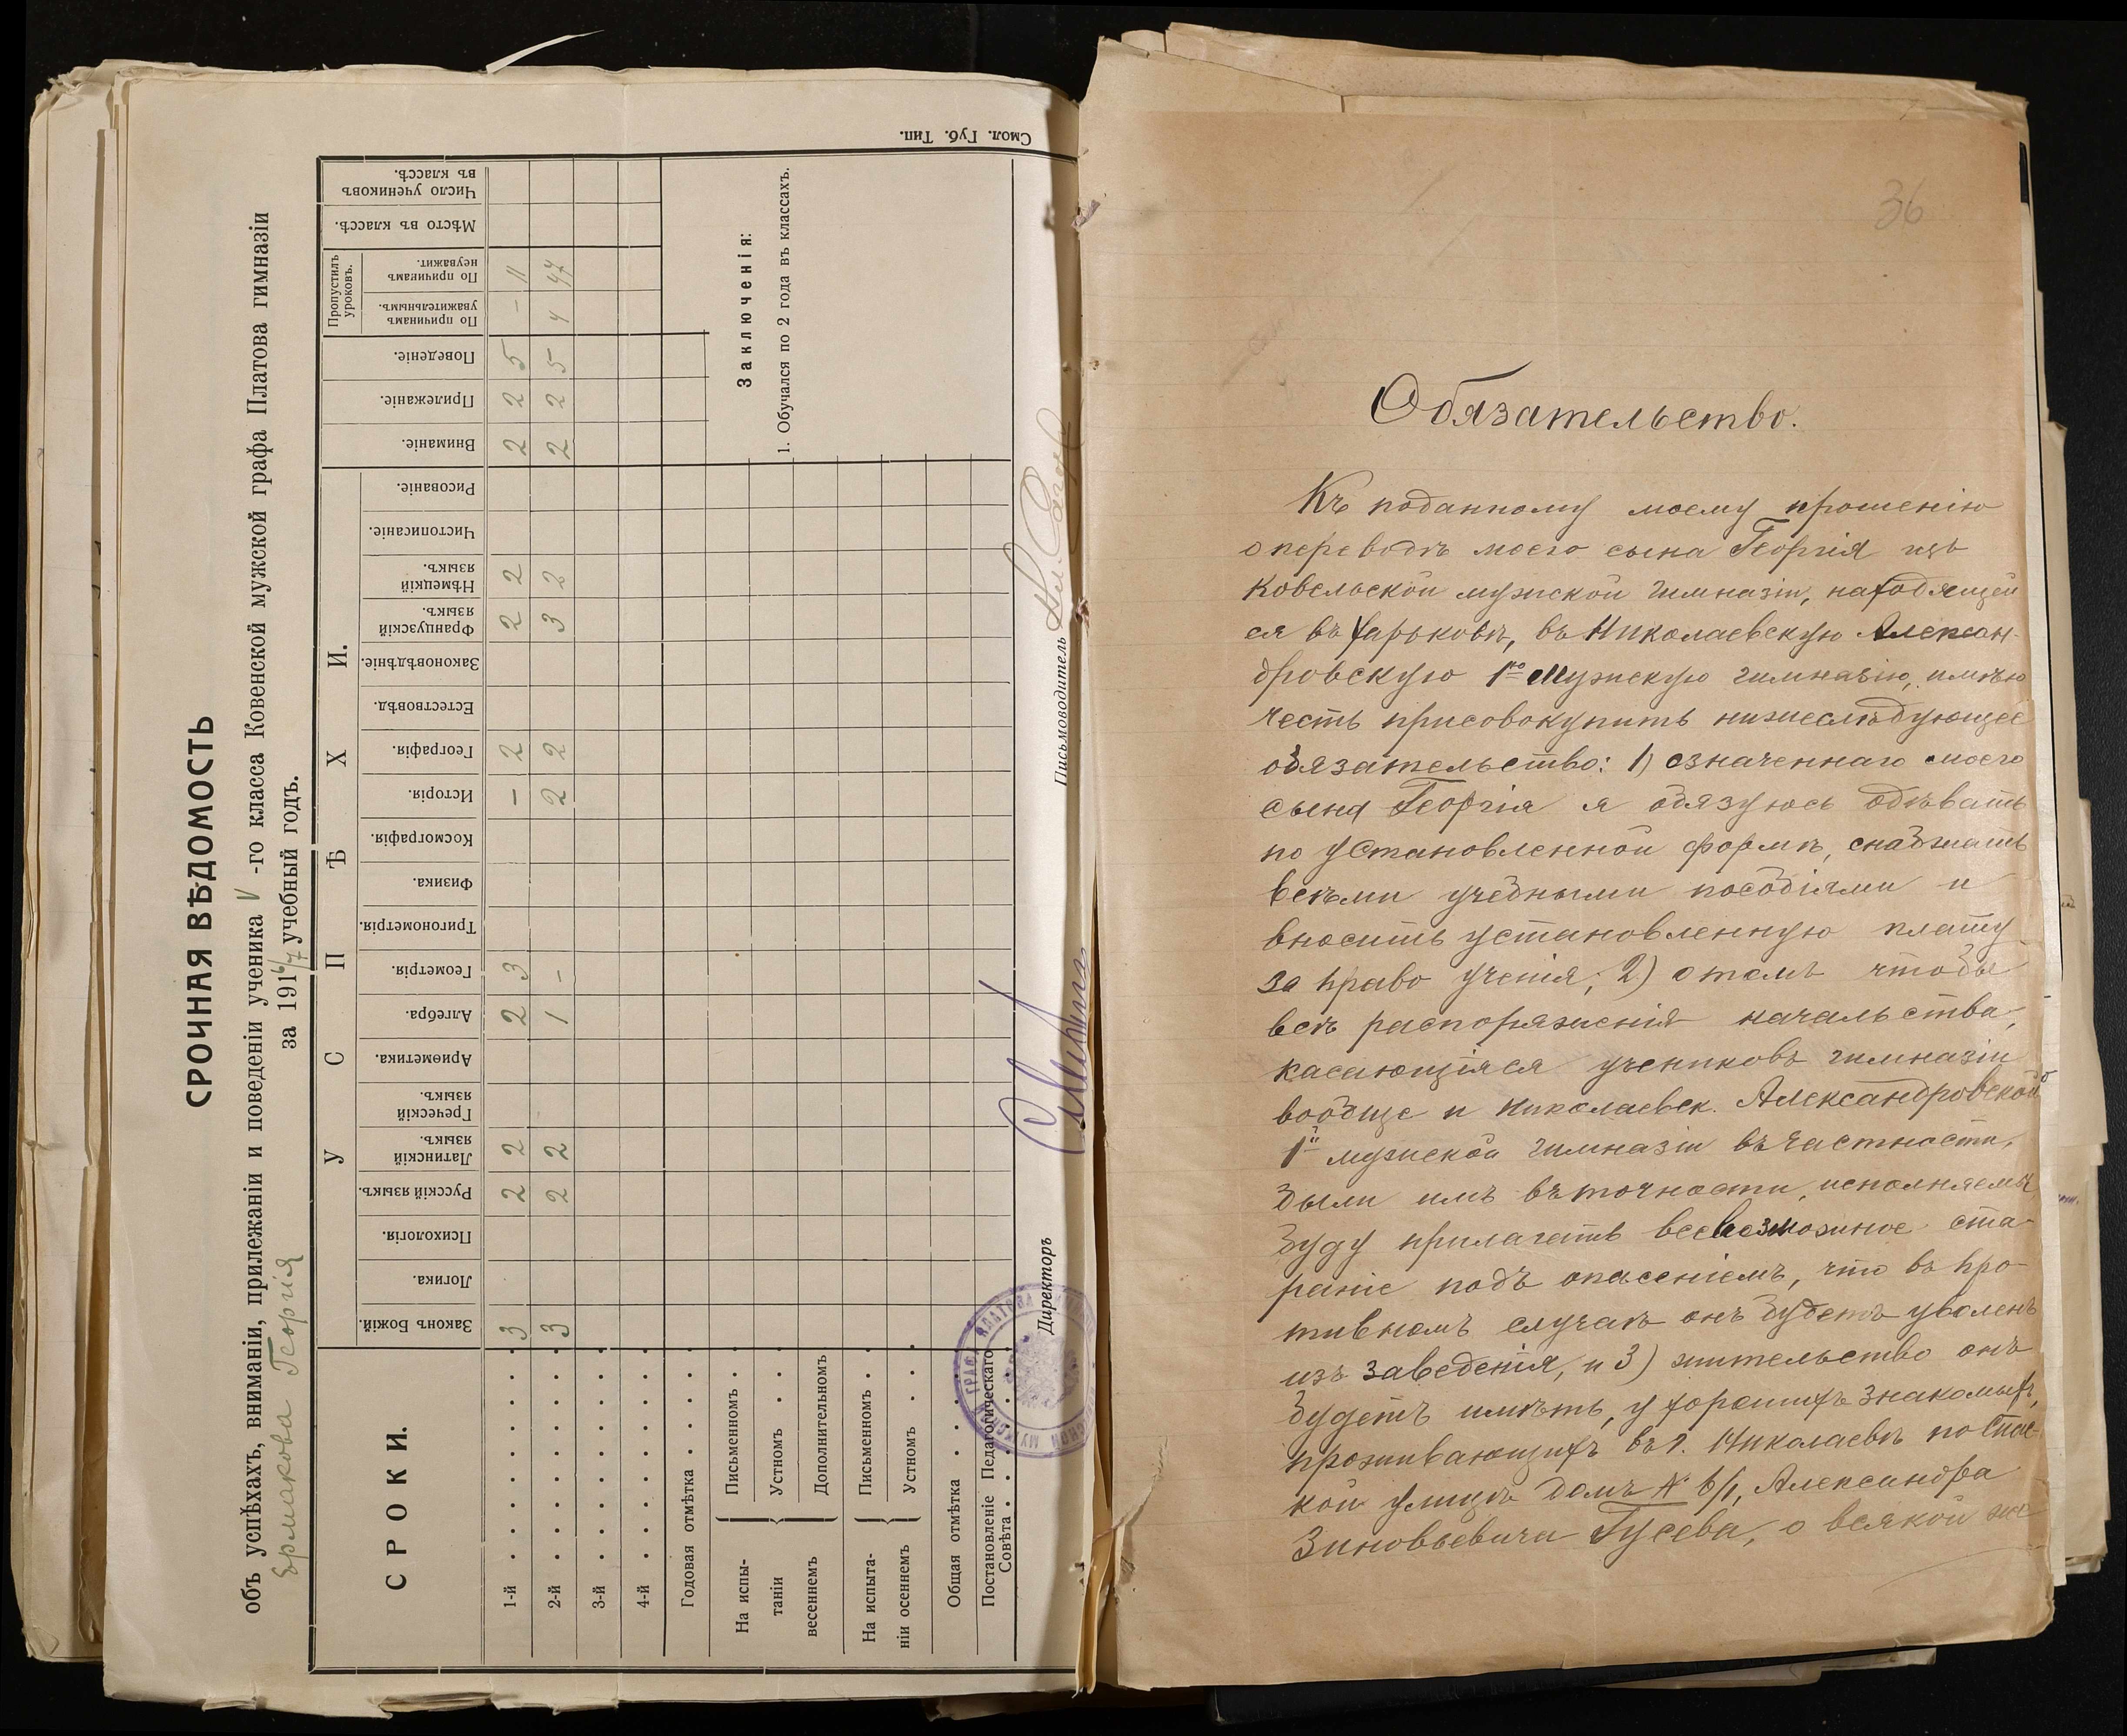 СРОЧНАЯ ВѢДОМОСТЬ
объ успѣхахъ, вниманіи, прилежаніи и поведеніи ученика V -го класса Ковенской мужской графа Платова гимназіи
Ермакова Георгія за 1916/7 учебный годъ.
СРОКИ.
УСПѢХИ.
Законъ Божій.
Логика.
Психологія.
Русскій языкъ.
Латинскій языкъ.
Греческій языкъ.
Ариѳметика.
Алгебра.
Геометрія.
Тригонометрія.
Физика.
Космографія.
Исторія.
Географія.
Естествовѣд.
Законовѣдѣніе.
Французскій языкъ.
Нѣмецкій языкъ.
Чистописаніе.
Рисованіе.
Вниманіе.
Прилежаніе.
Поведеніе.
Пропустилъ уроковъ.
По причинамъ уважительнымъ.
По причинамъ неуважит.
Мѣсто въ классѣ.
Число учениковъ въ классѣ.
1-й 3 2 2 2 3 - 2 2 2 2 2 5 - 11
2-й 3 2 2 1 - 2 2 3 2 2 2 5 4 47
3-й
4-й
Годовая отмѣтка
На испытаніи весеннемъ
Письменномъ
Устномъ
Дополнительномъ
На испытаніи осеннемъ
Письменномъ
Устномъ
Общая отмѣтка
Постановленіе Педагогическаго Совѣта
Заключенія:
1. Обучался по 2 года въ классахъ.
Директоръ
Письмоводитель
Смол. Губ. Тип.
36
Обязательство.
Къ поданному моему прошенію
о переводѣ моего сына Георгія изъ
Ковельской мужской гимназіи, находящей
ся въ Харьковѣ, въ Николаевскую Алексан-
дровскую 1ю Мужскую гимназію, имѣю
честь присовокупить нижеслѣдующее
обязательство: 1) означеннаго моего
сына Георгія я обязуюсь одѣвать
по установленной формѣ, снабжать
всѣми учебными пособіями и
вносить установленную плату
за право ученія; 2) о томъ чтобы
всѣ распоряженія начальства,
касающіяся учениковъ гимназіи
вообще и Николаевск. Александровской
1й мужской гимназіи въ частности,
были имъ въ точности исполняемы
буду прилагать всевозможное ста-
раніе подъ опасеніемъ, что въ про-
тивномъ случаѣ онъ будетъ уволенъ
изъ заведенія, и 3) жительство онъ
будетъ имѣть, у хорошихъ знакомыхъ,
проживающихъ въ г. Николаевѣ по Спас-
кой улицѣ домъ № 6/1, Александра
Зиновьевича Гусева, о всякой же